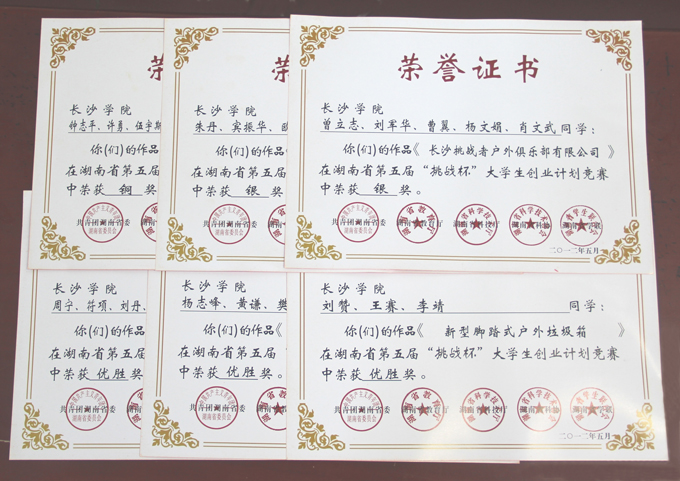 荣
长沙学院
帅志平、许勇、伍宇斯
你(们)的作品
在湖南省第五届
中荣获 铜 奖。
共青团湖南省委
荣
长沙学院
朱丹、宾振华、
你(们)的作品《
在湖南省第五届
中荣获 银 奖。
共青团湖南省委
荣誉证书
长沙学院
曾立志、刘军华、曹翼、杨文娟、肖文武同学：
你(们)的作品《长沙挑战者户外俱乐部有限公司》
在湖南省第五届“挑战杯”大学生创业计划竞赛
中荣获 银 奖。
共青团湖南省委 湖南省教育厅 湖南省科技厅 湖南省科协 湖南省学联
二〇一二年五月
长沙学院
周宁、符项、刘丹、
你(们)的作品
在湖南省第五届
中荣获 优胜 奖。
共青团湖南省委
长沙学院
杨志峰、黄谦、樊
你(们)的作品《
在湖南省第五届
中荣获 优胜 奖。
共青团湖南省委
长沙学院
刘赞、王赛、李靖 同学：
你(们)的作品《 新型脚踏式户外垃圾箱 》
在湖南省第五届“挑战杯”大学生创业计划竞赛
中荣获 优胜 奖。
共青团湖南省委 湖南省教育厅 湖南省科技厅 湖南省科协 湖南省学联
二〇一二年五月